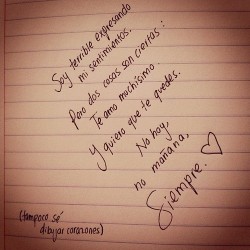 Soy terrible expresando
mi sentimientos.
Pero dos cosas son ciertas:
Te amo muchísimo.
Y quiero que te quedes.
No hoy,
no mañana,
Siempre.
(tampoco sé
dibujar corazones)